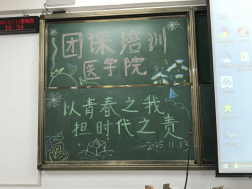 团课培训
医学院
以青春之我
担时代之责
2025.11.13